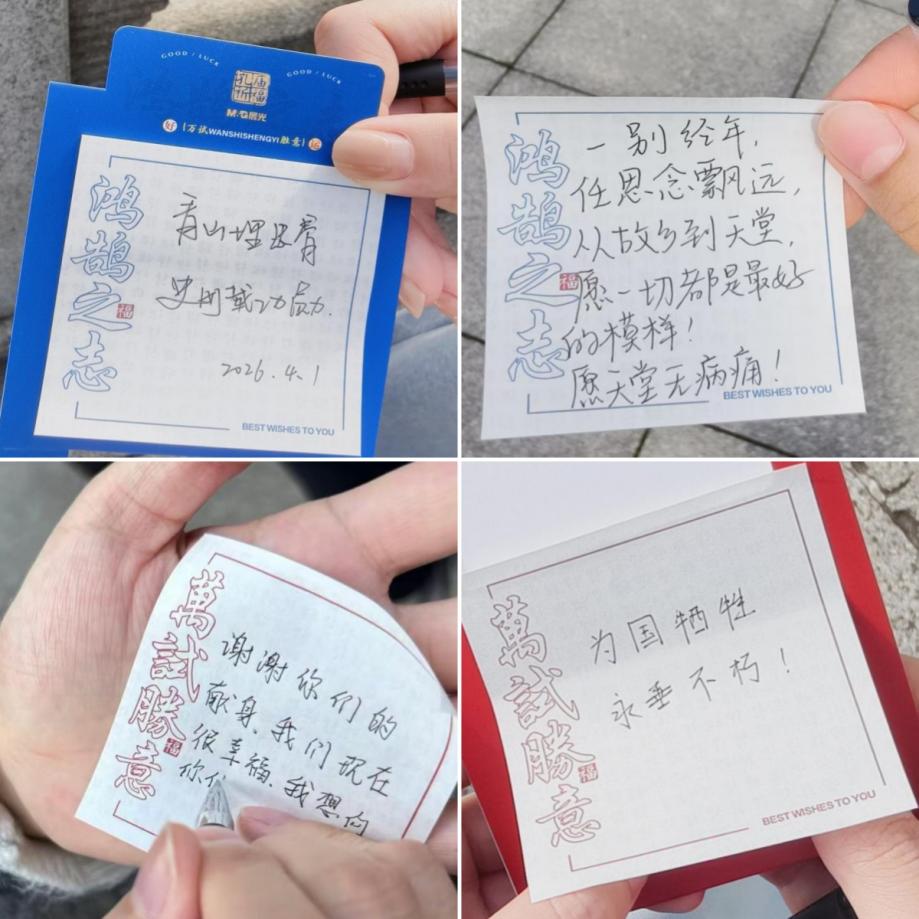 GOOD / LUCK
GOOD / LUCK
孔庙祈福
M&G晨光
好 万试WANSHISHENGYI胜意 运
鸿鹄之志
福
青山埋忠骨
史册载功勋.
2026.4.1
BEST WISHES TO YOU
鸿鹄之志
福
一别经年,
任思念飘远,
从故乡到天堂,
愿一切都是最好
的模样!
愿天堂无病痛!
BEST WISHES TO YOU
萬試勝意
福
谢谢你们的
献身,我们现在
很幸福,我想向
你们
萬試勝意
福
为国牺牲
永垂不朽!
BEST WISHES TO YOU